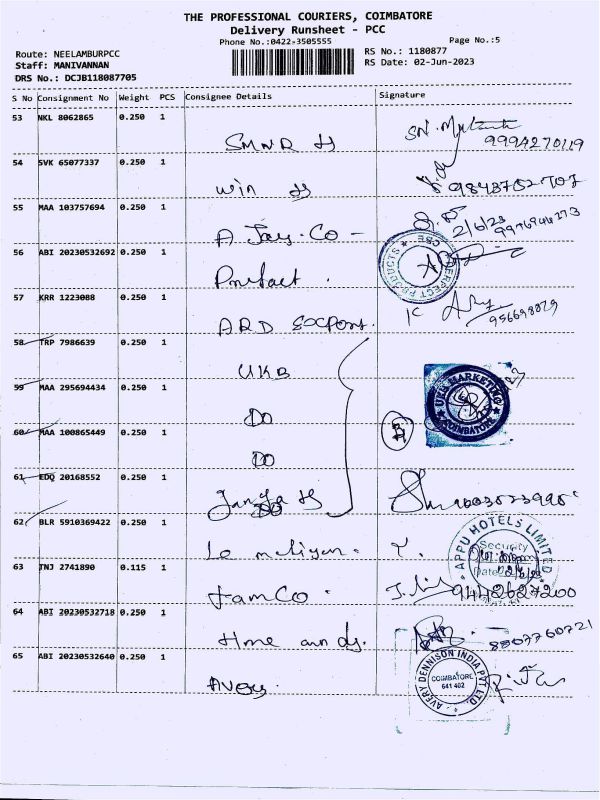 THE PROFESSIONAL COURIERS, COIMBATORE
Delivery Runsheet - PCC
Phone No.:0422-3505555
Page No.:5
Route: NEELAMBURPCC
Staff: MANIVANNAN
DRS No.: DCJB118087705
RS No.: 1180877
RS Date: 02-Jun-2023
S No Consignment No Weight PCS Consignee Details Signature
53 NKL 8062865 0.250 1
9994270119
54 SVK 65077337 0.250 1
Win
55 MAA 103757694 0.250 1
A Jay. Co - 2/6/23
56 ABI 20230532692 0.250 1
Prefact. PERFECT PRODUCTS CBE
57 KRR 1223088 0.250 1
ARD Export.
58 TRP 7986639 0.250 1
UKB
59 MAA 295694434 0.250 1
DO
UKB MARKETING COIMBATORE
60 MAA 100865449 0.250 1
DO
61 EDQ 20168552 0.250 1
62 BLR 5910369422 0.250 1
Le meridian.
APPU HOTELS LIMITED
Security
Date
63 TNJ 2741890 0.115 1
9442627200
64 ABI 20230532718 0.250 1
8807760721
65 ABI 20230532640 0.250 1
Avery
AVERY DENNISON INDIA PVT LTD.
COIMBATORE
641 402